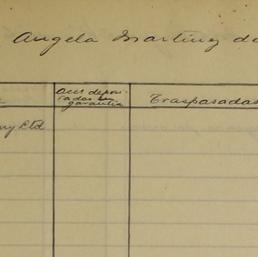 Angela Martinez de
Accs depos-
tadas en
garantia
Traspasadas
ny Ltd